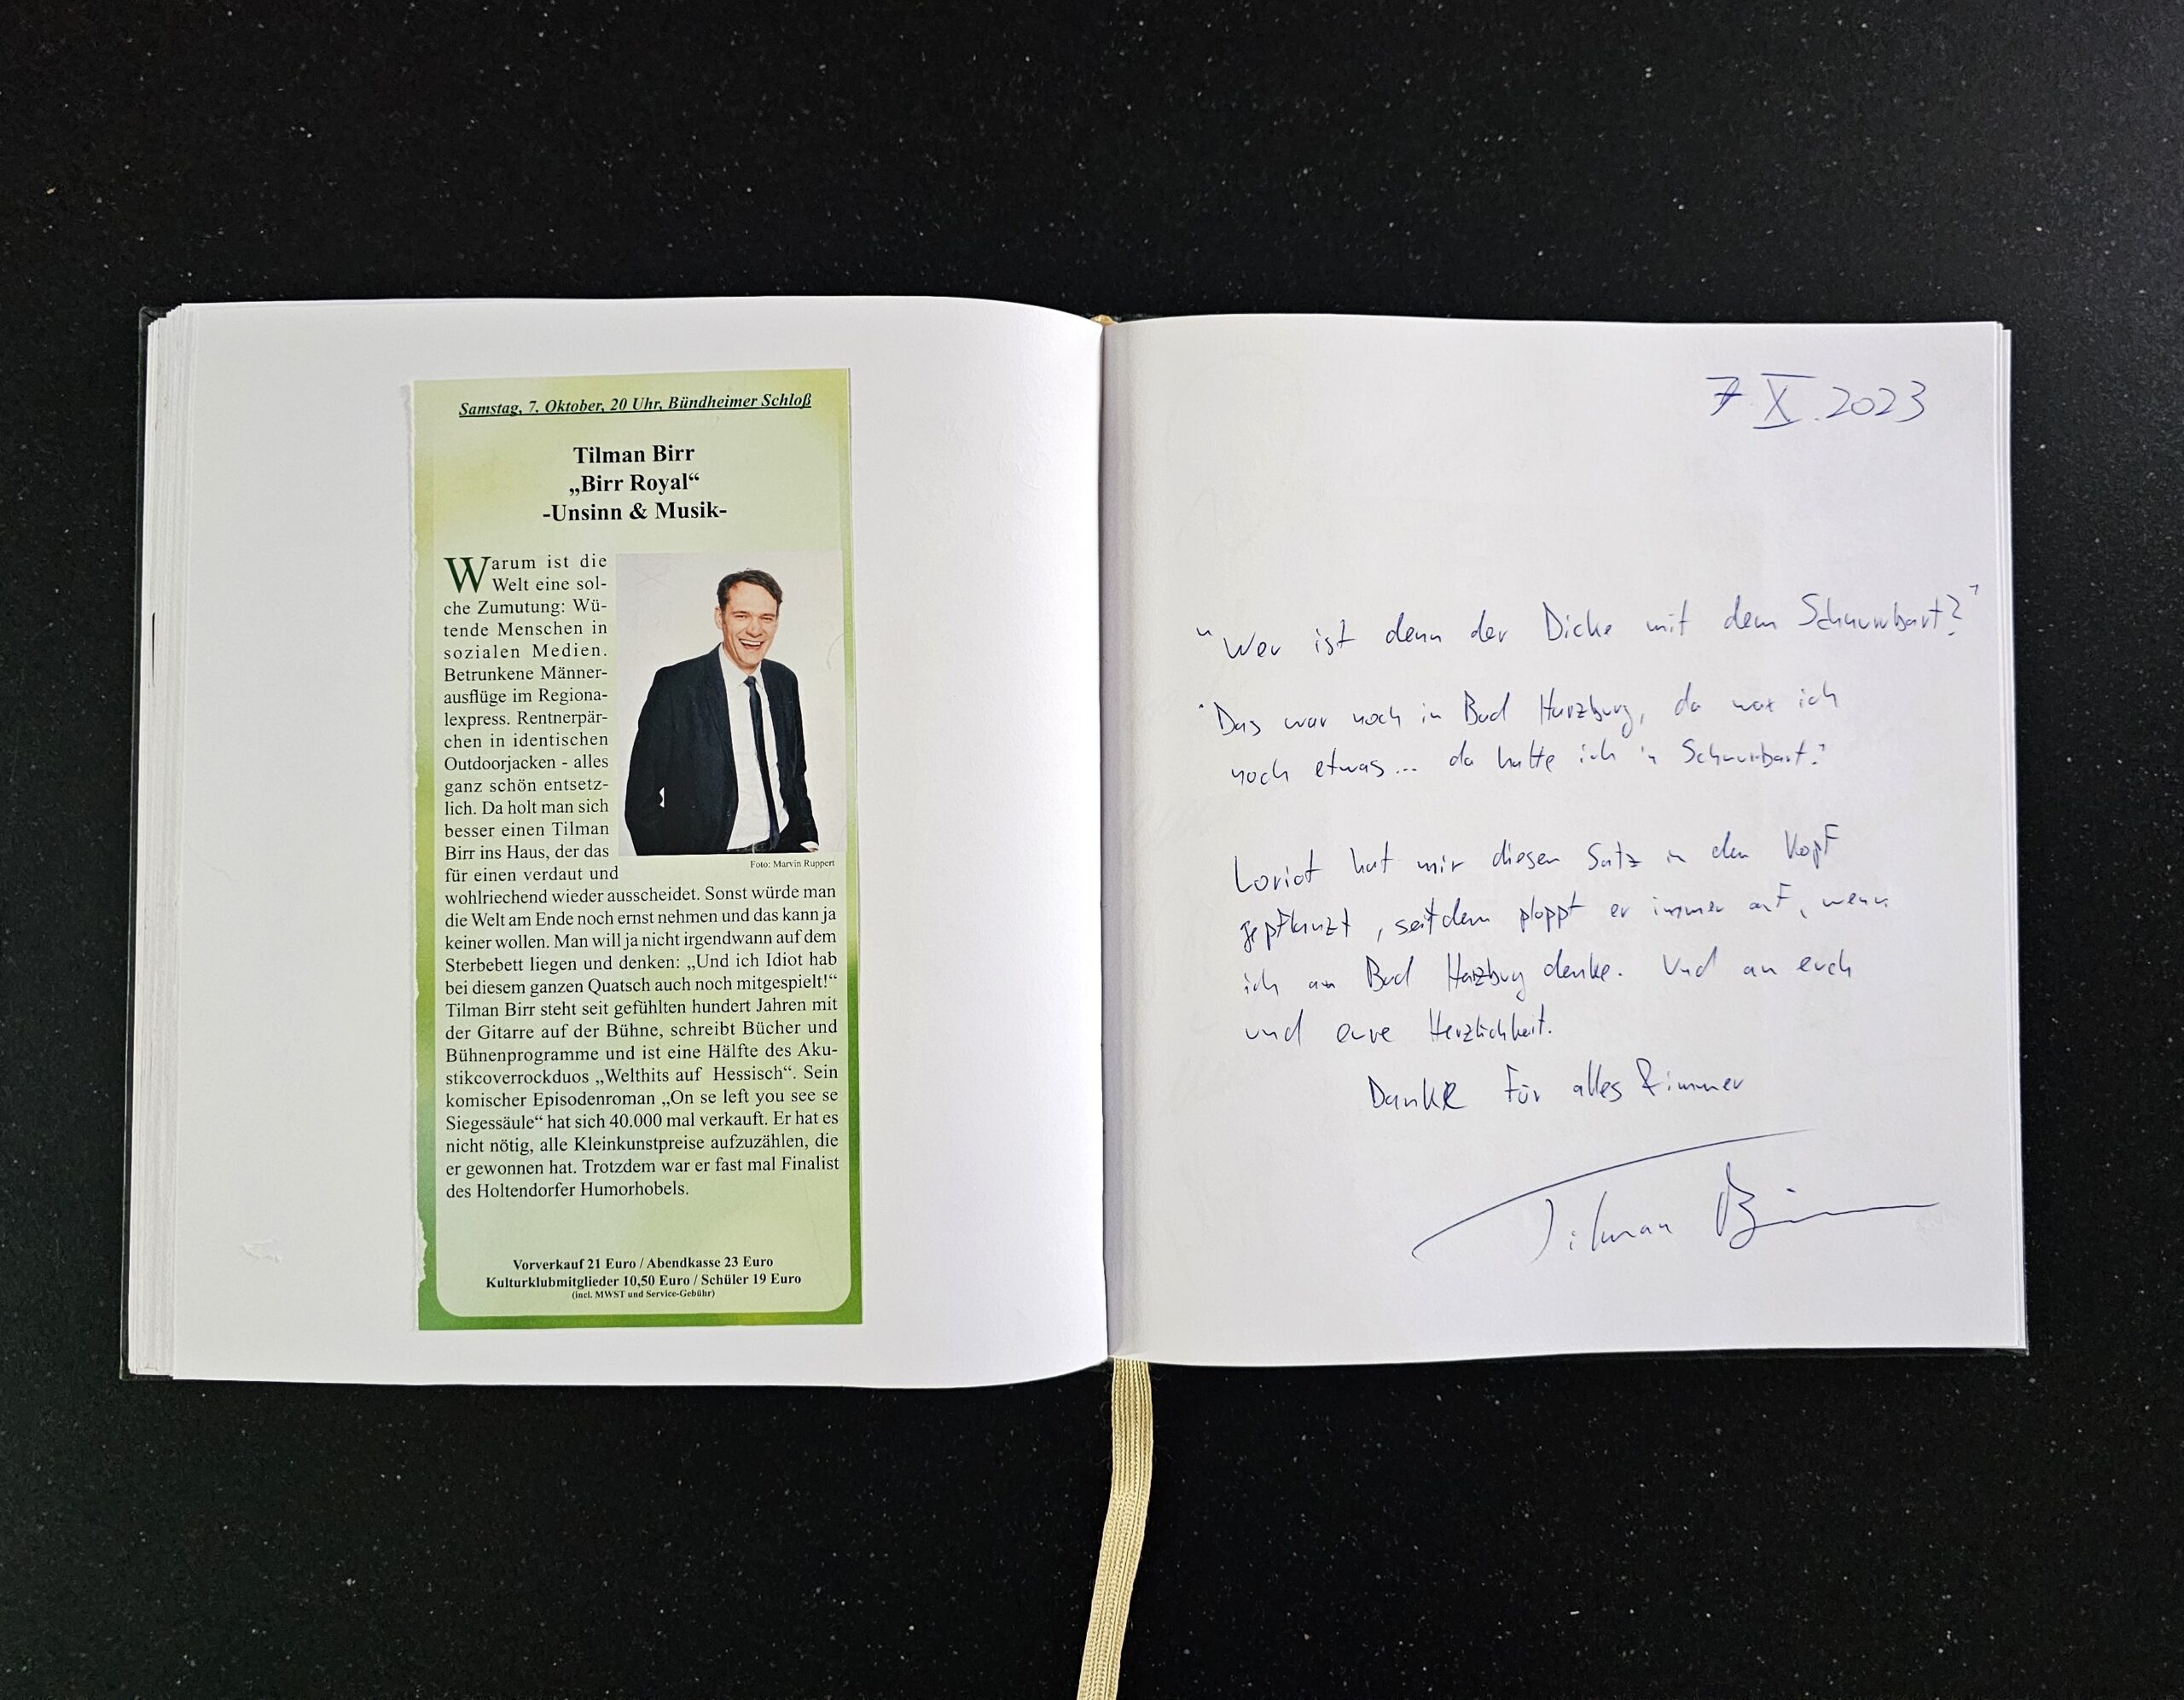 Samstag, 7. Oktober, 20 Uhr, Bündheimer Schloß
Tilman Birr
„Birr Royal“
-Unsinn & Musik-
Warum ist die
Welt eine sol-
che Zumutung: Wü-
tende Menschen in
sozialen Medien.
Betrunkene Männer-
ausflüge im Regiona-
lexpress. Rentnerpär-
chen in identischen
Outdoorjacken - alles
ganz schön entsetz-
lich. Da holt man sich
besser einen Tilman
Birr ins Haus, der das
für einen verdaut und
Foto: Marvin Ruppert
wohlriechend wieder ausscheidet. Sonst würde man
die Welt am Ende noch ernst nehmen und das kann ja
keiner wollen. Man will ja nicht irgendwann auf dem
Sterbebett liegen und denken: „Und ich Idiot hab
bei diesem ganzen Quatsch auch noch mitgespielt!“
Tilman Birr steht seit gefühlten hundert Jahren mit
der Gitarre auf der Bühne, schreibt Bücher und
Bühnenprogramme und ist eine Hälfte des Aku-
stikcoverrockduos „Welthits auf Hessisch“. Sein
komischer Episodenroman „On se left you see se
Siegessäule“ hat sich 40.000 mal verkauft. Er hat es
nicht nötig, alle Kleinkunstpreise aufzuzählen, die
er gewonnen hat. Trotzdem war er fast mal Finalist
des Holtendorfer Humorhobels.
Vorverkauf 21 Euro / Abendkasse 23 Euro
Kulturklubmitglieder 10,50 Euro / Schüler 19 Euro
(incl. MWST und Service-Gebühr)
7. X. 2023
"Wer ist denn der Dicke mit dem Schnurrbart?"
"Das war noch in Bad Harzburg, da war ich
noch etwas... da hatte ich 'n Schnurrbart."
Loriot hat mir diesen Satz in den Kopf
gepflanzt, seitdem ploppt er immer auf, wenn
ich an Bad Harzburg denke. Und an euch
und eure Herzlichkeit.
Danke für alles
Tilman Birr